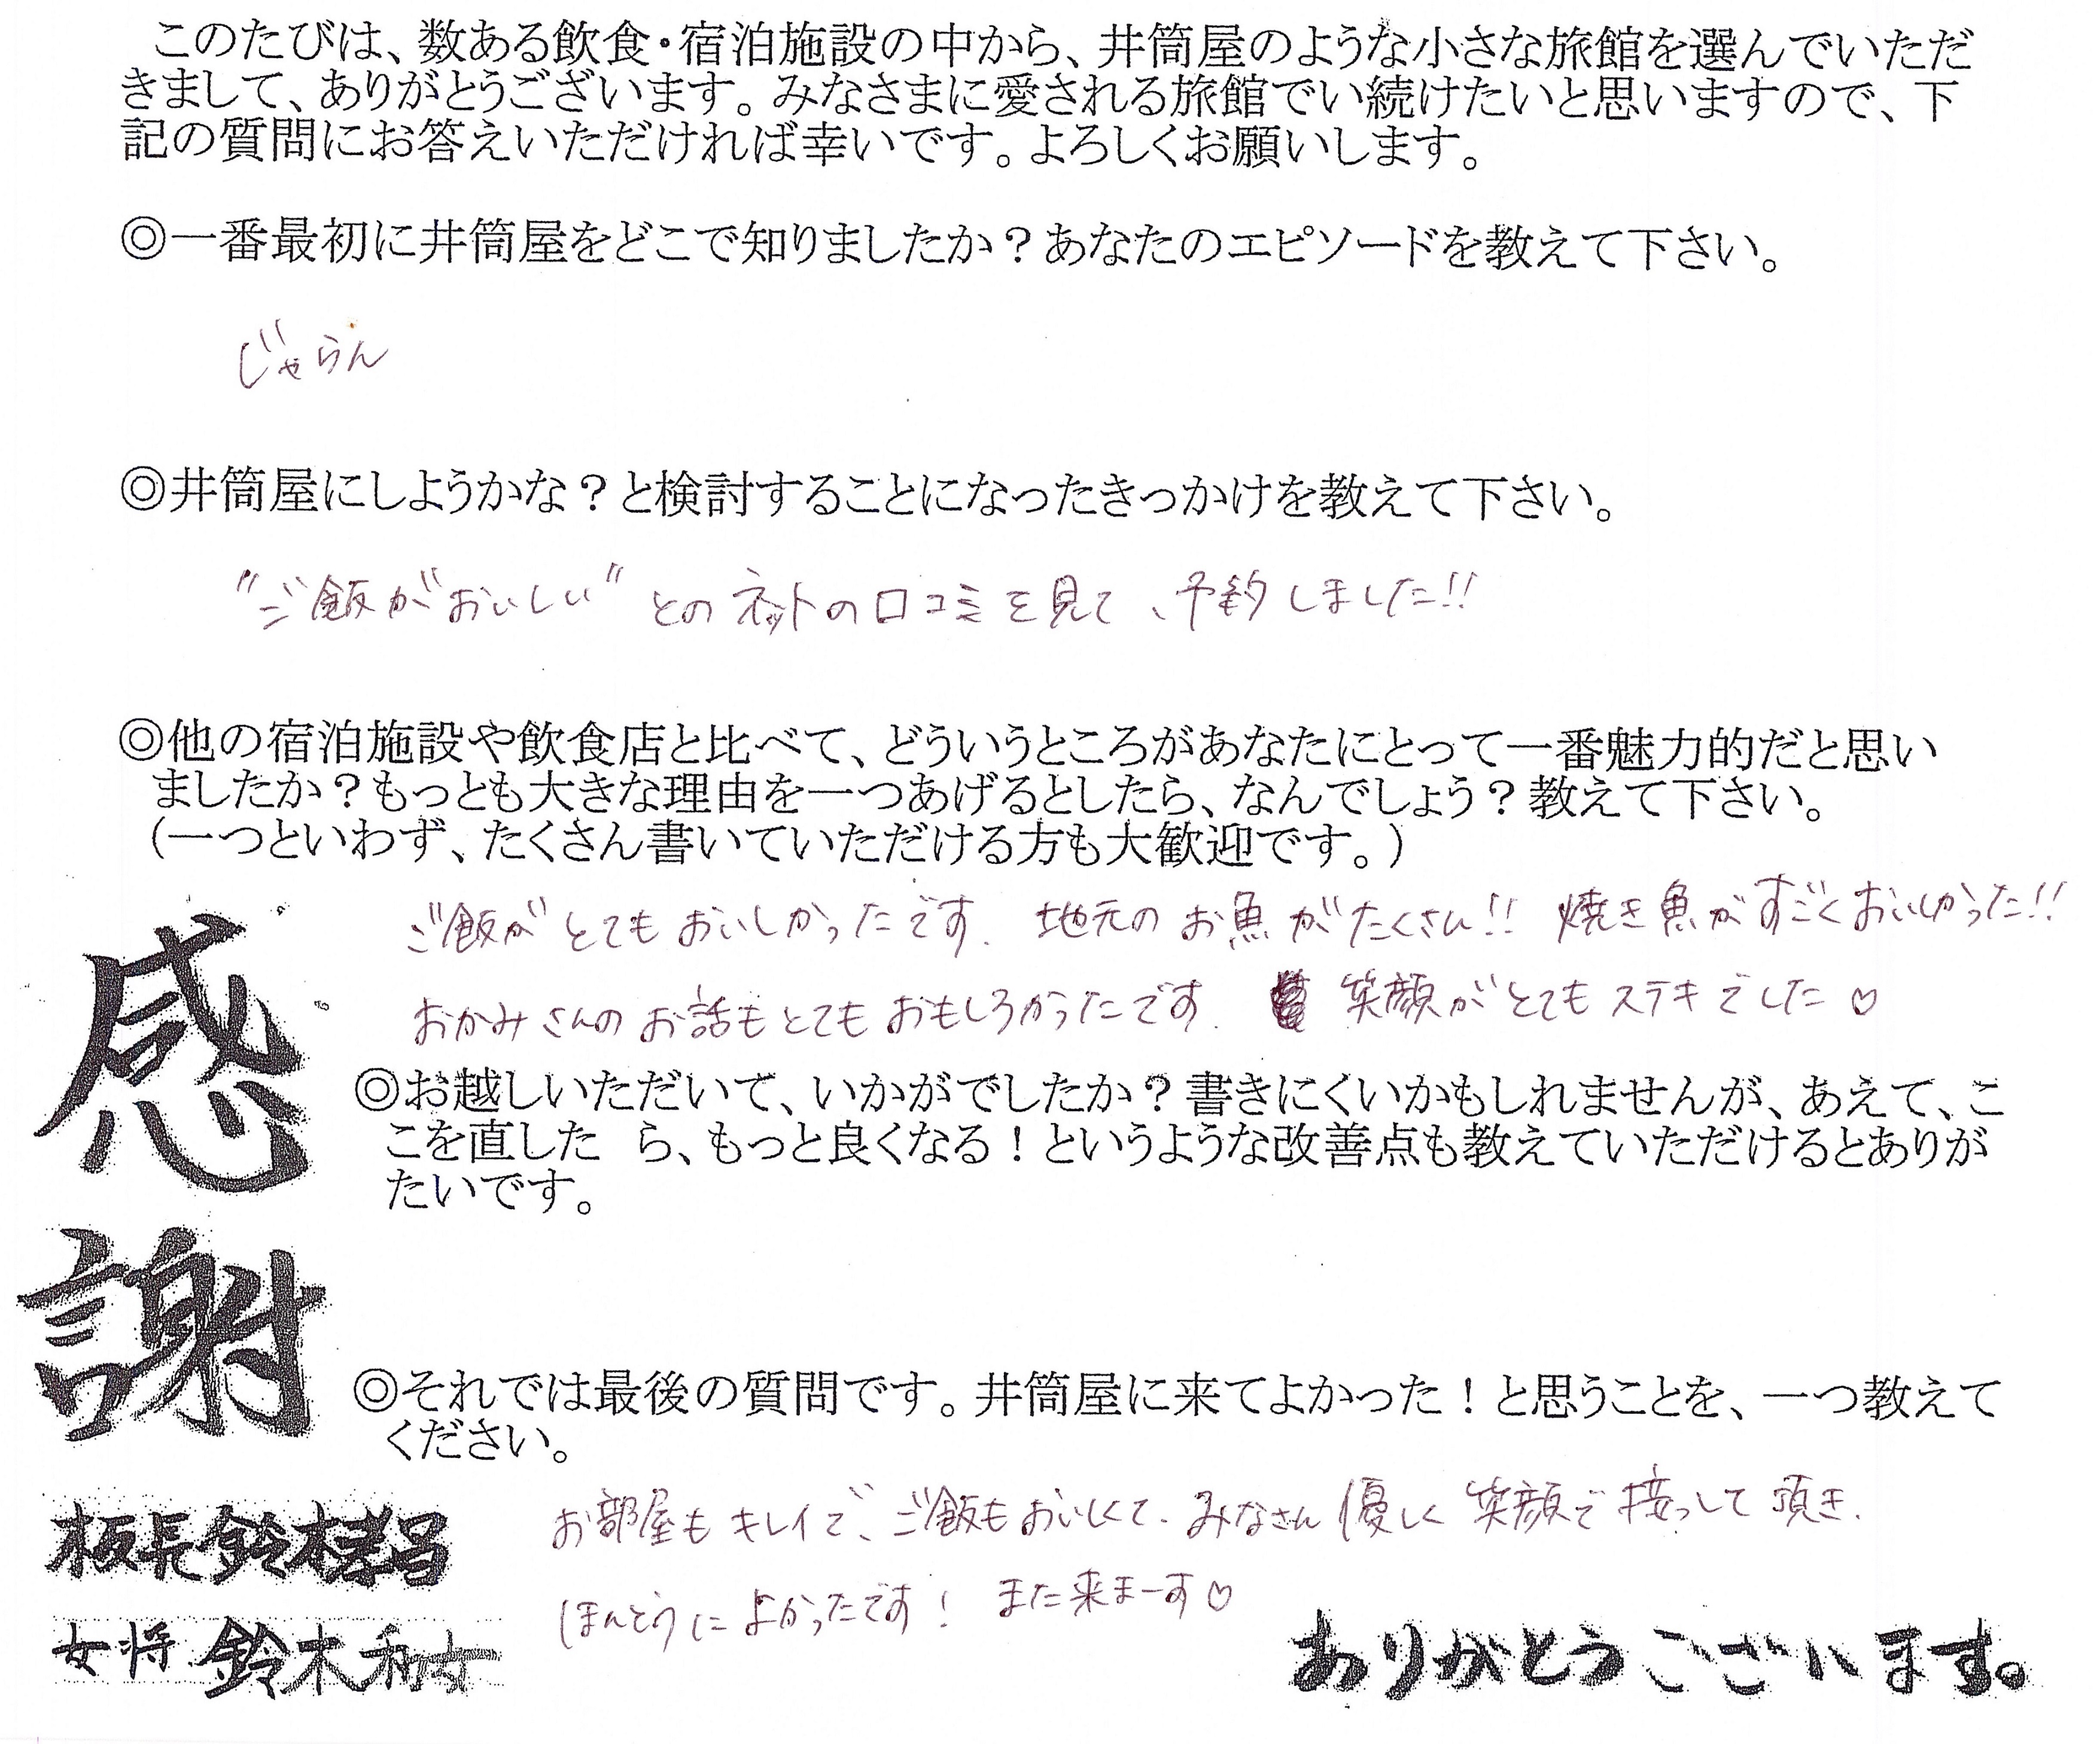 このたびは、数ある飲食・宿泊施設の中から、井筒屋のような小さな旅館を選んでいただ
きまして、ありがとうございます。みなさまに愛される旅館でい続けたいと思いますので、下
記の質問にお答えいただければ幸いです。よろしくお願いします。
◎一番最初に井筒屋をどこで知りましたか？あなたのエピソードを教えて下さい。
じゃらん
◎井筒屋にしようかな？と検討することになったきっかけを教えて下さい。
"ご飯がおいしい"とのネットの口コミを見て、予約しました!!
◎他の宿泊施設や飲食店と比べて、どういうところがあなたにとって一番魅力的だと思い
ましたか？もっとも大きな理由を一つあげるとしたら、なんでしょう？教えて下さい。
(一つといわず、たくさん書いていただける方も大歓迎です。)
ご飯がとてもおいしかったです. 地元のお魚がたくさん!! 焼き魚がすごくおいしかった!!
おかみさんのお話もとてもおもしろかったです. 笑顔がとてもステキでした♡
◎お越しいただいて、いかがでしたか？書きにくいかもしれませんが、あえて、こ
こを直した ら、もっと良くなる！というような改善点も教えていただけるとありが
たいです。
◎それでは最後の質問です。井筒屋に来てよかった！と思うことを、一つ教えて
ください。
お部屋もキレイで、ご飯もおいしくて、みなさん優しく笑顔で接っして頂き、
ほんとうによかったです！ また来まーす♡
感謝
板長 鈴木孝昌
女将 鈴木和女
ありがとうございます。